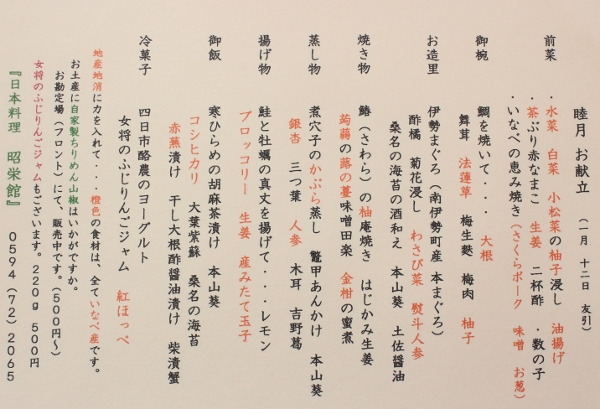 睦月 お献立 (一月 十二日 友引)
前菜 ・水菜 白菜 小松菜の柚子浸し 油揚げ
・茶ぶり赤なまこ 生姜 二杯酢 ・数の子
・いなべの恵み焼き(さくらポーク 味噌 お葱)
御椀 鯛を焼いて・・・ 大根
舞茸 法蓮草 梅生麩 梅肉 柚子
お造里 伊勢まぐろ(南伊勢町産本まぐろ)
酢橘 菊花浸し わさび菜 熨斗人参
桑名の海苔の酒和え 本山葵 土佐醤油
焼き物 鰆(さわら)の柚庵焼き はじかみ生姜
蒟蒻の蕗の薹味噌田楽 金柑の蜜煮
蒸し物 煮穴子のかぶら蒸し 鼈甲あんかけ 本山葵
銀杏 三つ葉 人参 木耳 吉野葛
揚げ物 鮭と牡蠣の真丈を揚げて・・・レモン
ブロッコリー 生姜 産みたて玉子
御飯 寒ひらめの胡麻茶漬け 本山葵
コシヒカリ 大葉紫蘇 桑名の海苔
赤蕪漬け 干し大根酢醤油漬け 柴漬蟹
冷菓子 四日市酪農のヨーグルト
女将のふじりんごジャム 紅ほっぺ
地産地消に力を入れて・・・橙色の食材は、全ていなべ産です。
お土産に自家製ちりめん山椒はいかがですか。
お勘定場(フロント)にて、販売中です。(500円〜)
女将のふじりんごジャムもございます。220g 500円
『日本料理 昭栄館』 0594(72)2065